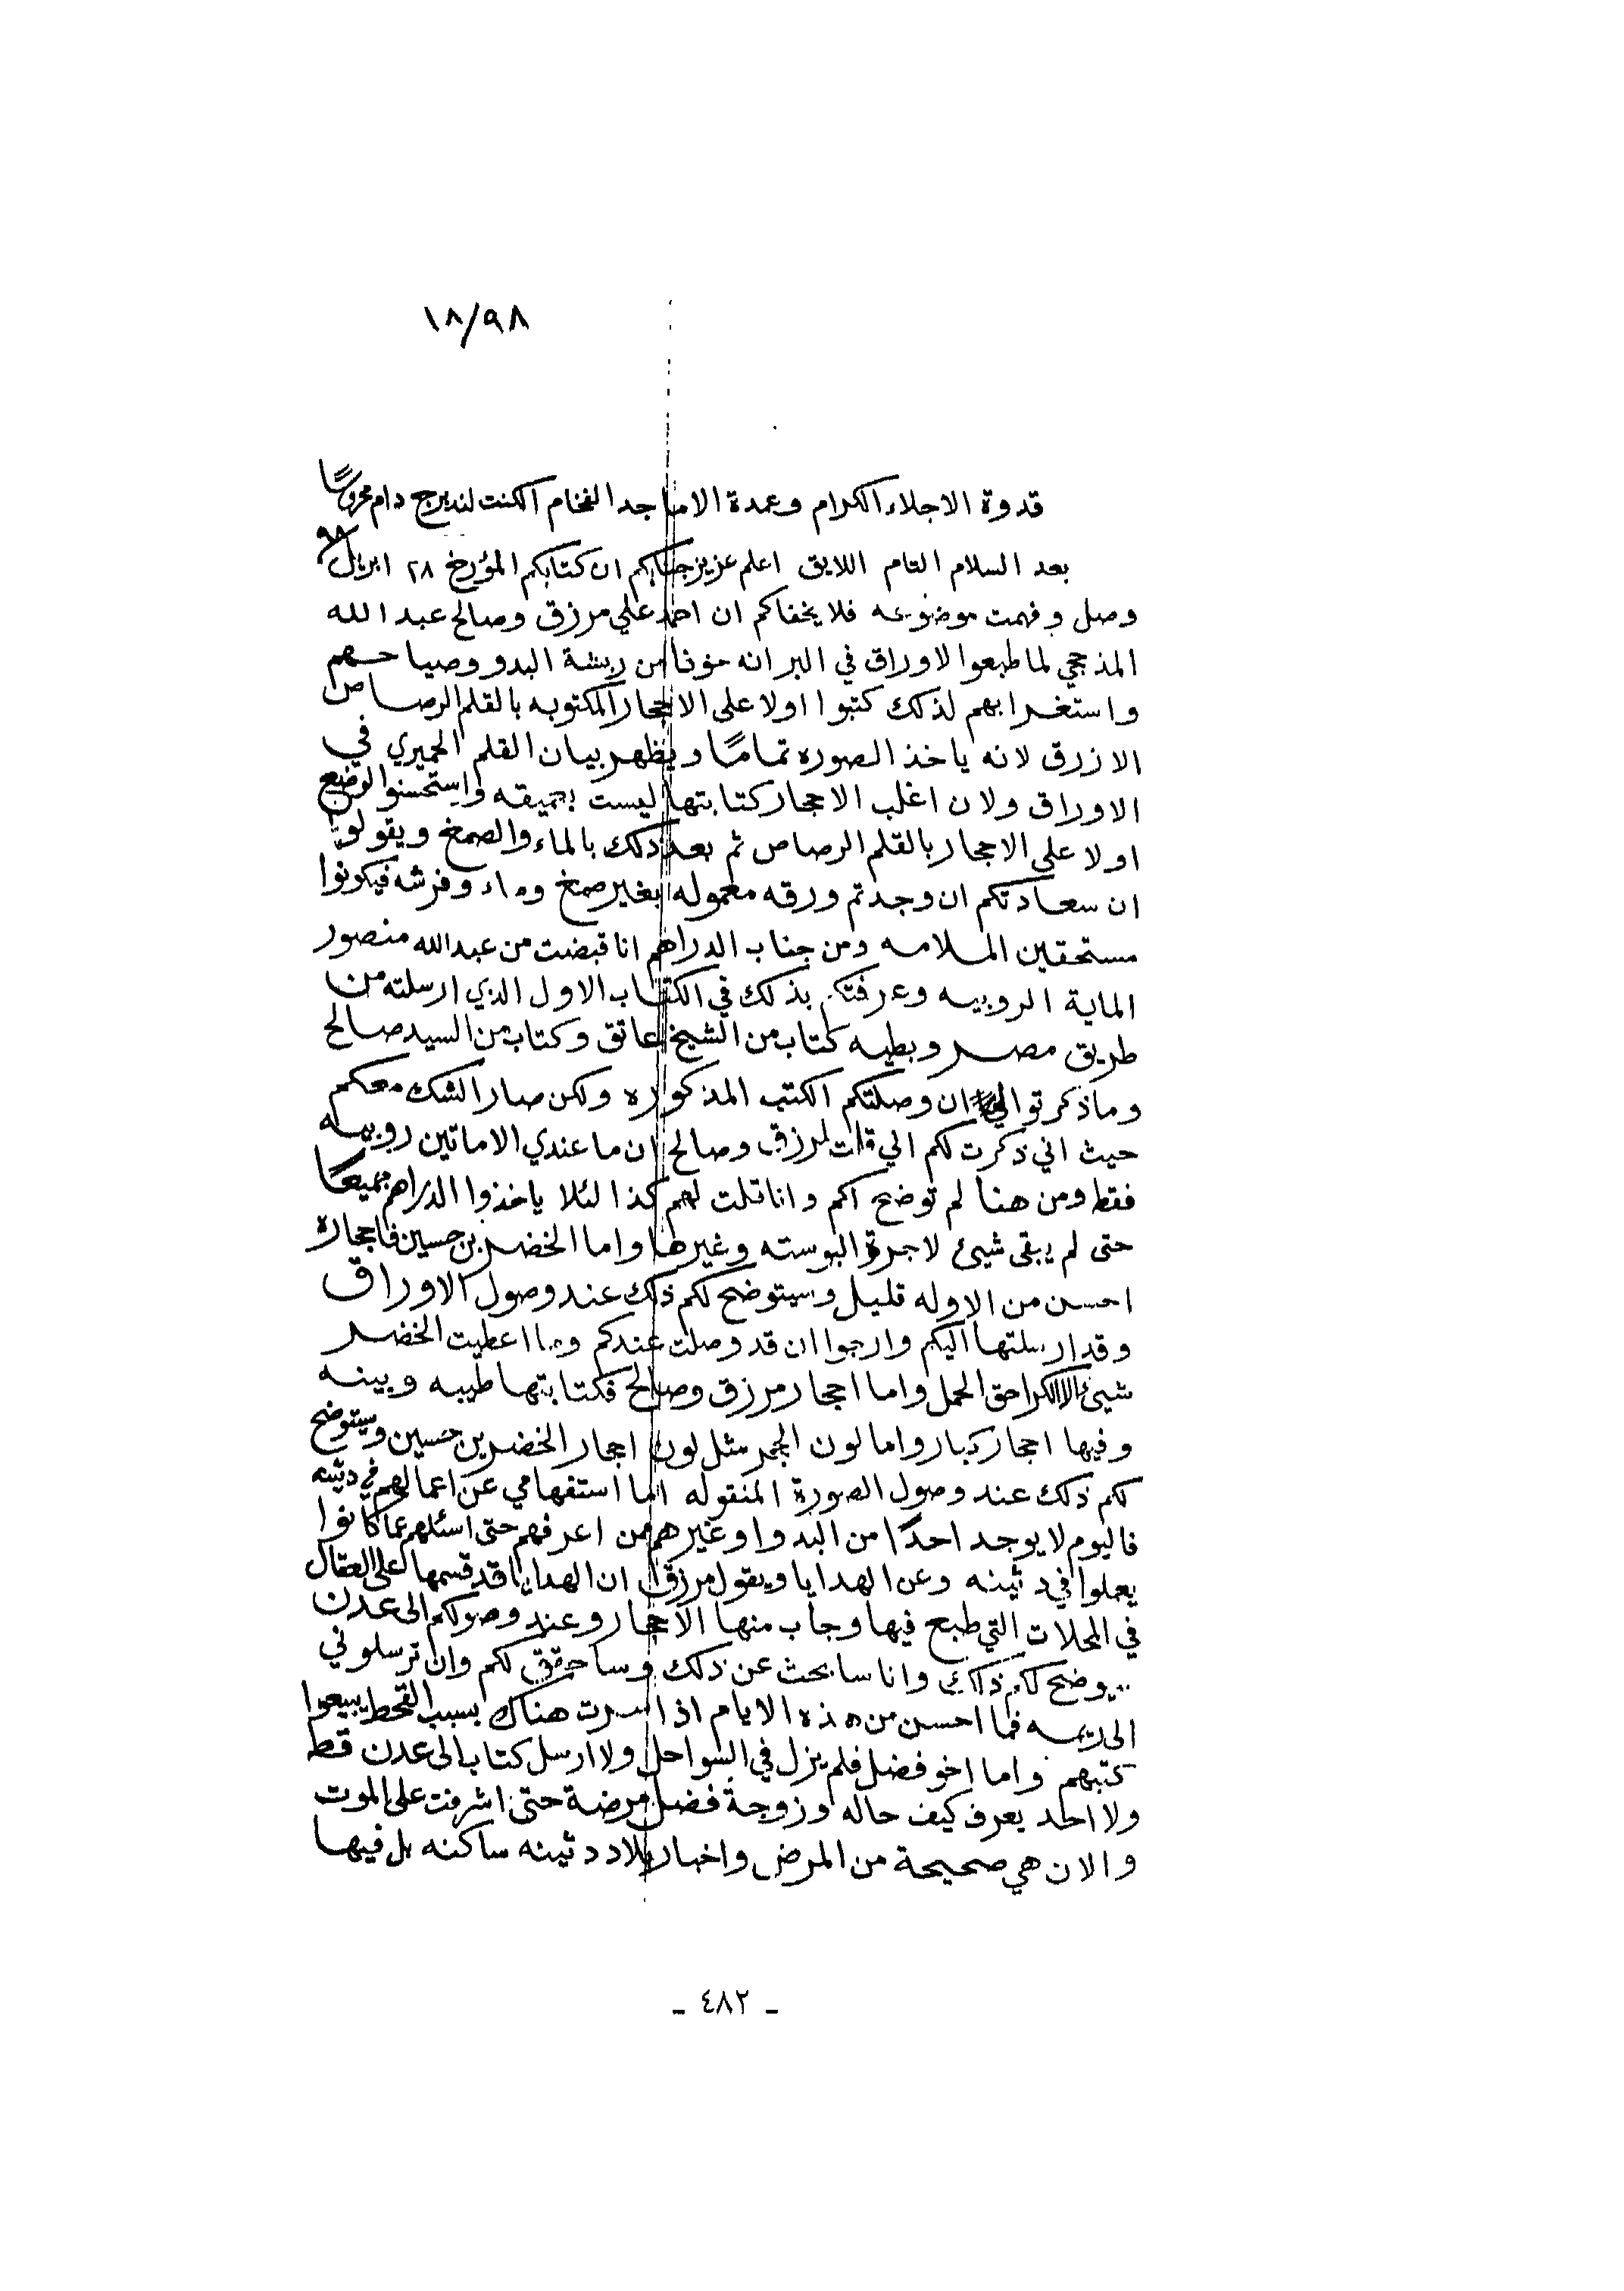 ١٨/٩٨
قدوة الاجلاء الكرام وعمدة الاماجد الفخام الكنت لندبرج دام محروسًا
بعد السلام التام اللايق اعلم عزيز جنابكم ان كتابكم المؤرخ ٢٨ ابريل ٩٨
وصل وفهمت موضوعه فلا يخفاكم ان احمد علي مرزق وصالح عبد الله
المذحجي لما طبعوا الاوراق في البر انه خوفا من ربشة البدو وصياحهم
واستغرابهم لذلك كتبوا اولا على الاحجار المكتوبه بالقلم الرصاص
الازرق لانه ياخذ الصوره تمامًا ويظهر بيان القلم الحميري في
الاوراق ولان اغلب الاحجار كتابتها ليست بعميقه واستحسنوا الوضع
اولا على الاحجار بالقلم الرصاص ثم بعد ذلك بالماء والصمغ ويقولو
ان سعادتكم ان وجدتم ورقه معموله بغير صمغ وماء وفرشه فيكونوا
مستحقين الملامه ومن جناب الدراهم انا قبضت من عبدالله منصور
الماية الروبيه وعرفتكم بذلك في الكتاب الاول الذي ارسلته من
طريق مصر وبطيه كتاب من الشيخ عاتق وكتاب من السيد صالح
وماذكرتوا لي ان وصلتكم الكتب المذكوره ولكن صار الشك معكم
حيث اني ذكرت لكم الي قلت لمرزق وصالح ان ما عندي الا ماتين روبيه
فقط ومن هنا لم توضح لكم وانا قلت لهم كذا لئلا ياخذوا الدراهم جميعًا
حتى لم يبقى شيئ لاجرة البوسته وغيرها واما الخضر بن حسين فاحجاره
احسن من الاوله قليل وسيتوضح لكم ذلك عند وصول الاوراق
وقد ارسلتها اليكم وارجوا ان قد وصلت عندكم وما اعطيت الخضر
شيئ الا الكرا حق الحمل واما احجار مرزق وصالح فكتابتها طيبه وبينه
وفيها احجار كبار واما لون الحجر مثل لون احجار الخضر بن حسين وسيتوضح
لكم ذلك عند وصول الصورة المنقوله اما استفهامي عن اعمالهم في دثينه
فاليوم لا يوجد احدًا من البدوا وغيرهم من اعرفهم حتى اسئلهم عما كانوا
يعملوا في دثينه وعن الهدايا ويقول مرزق ان الهدايا قد قسمها على العقال
في المحلات التي طبع فيها وجاب منها الاحجار وعند وصولكم الى عدن
يوضح لكم ذلك وانا سابحث عن ذلك وساحقق لكم وان ترسلوني
الى ريمه فما احسن من هذه الايام اذا سرت هناك بسبب القحط يبيعوا
كتبهم واما اخو فضل فلم يزل في السواحل ولا ارسل كتاب الى عدن قط
ولا احد يعرف كيف حاله وزوجة فضل مرضة حتى اشرفت على الموت
والان هي صحيحة من المرض واخبار بلاد دثينه ساكنه بل فيها
- ٤٨٢ -